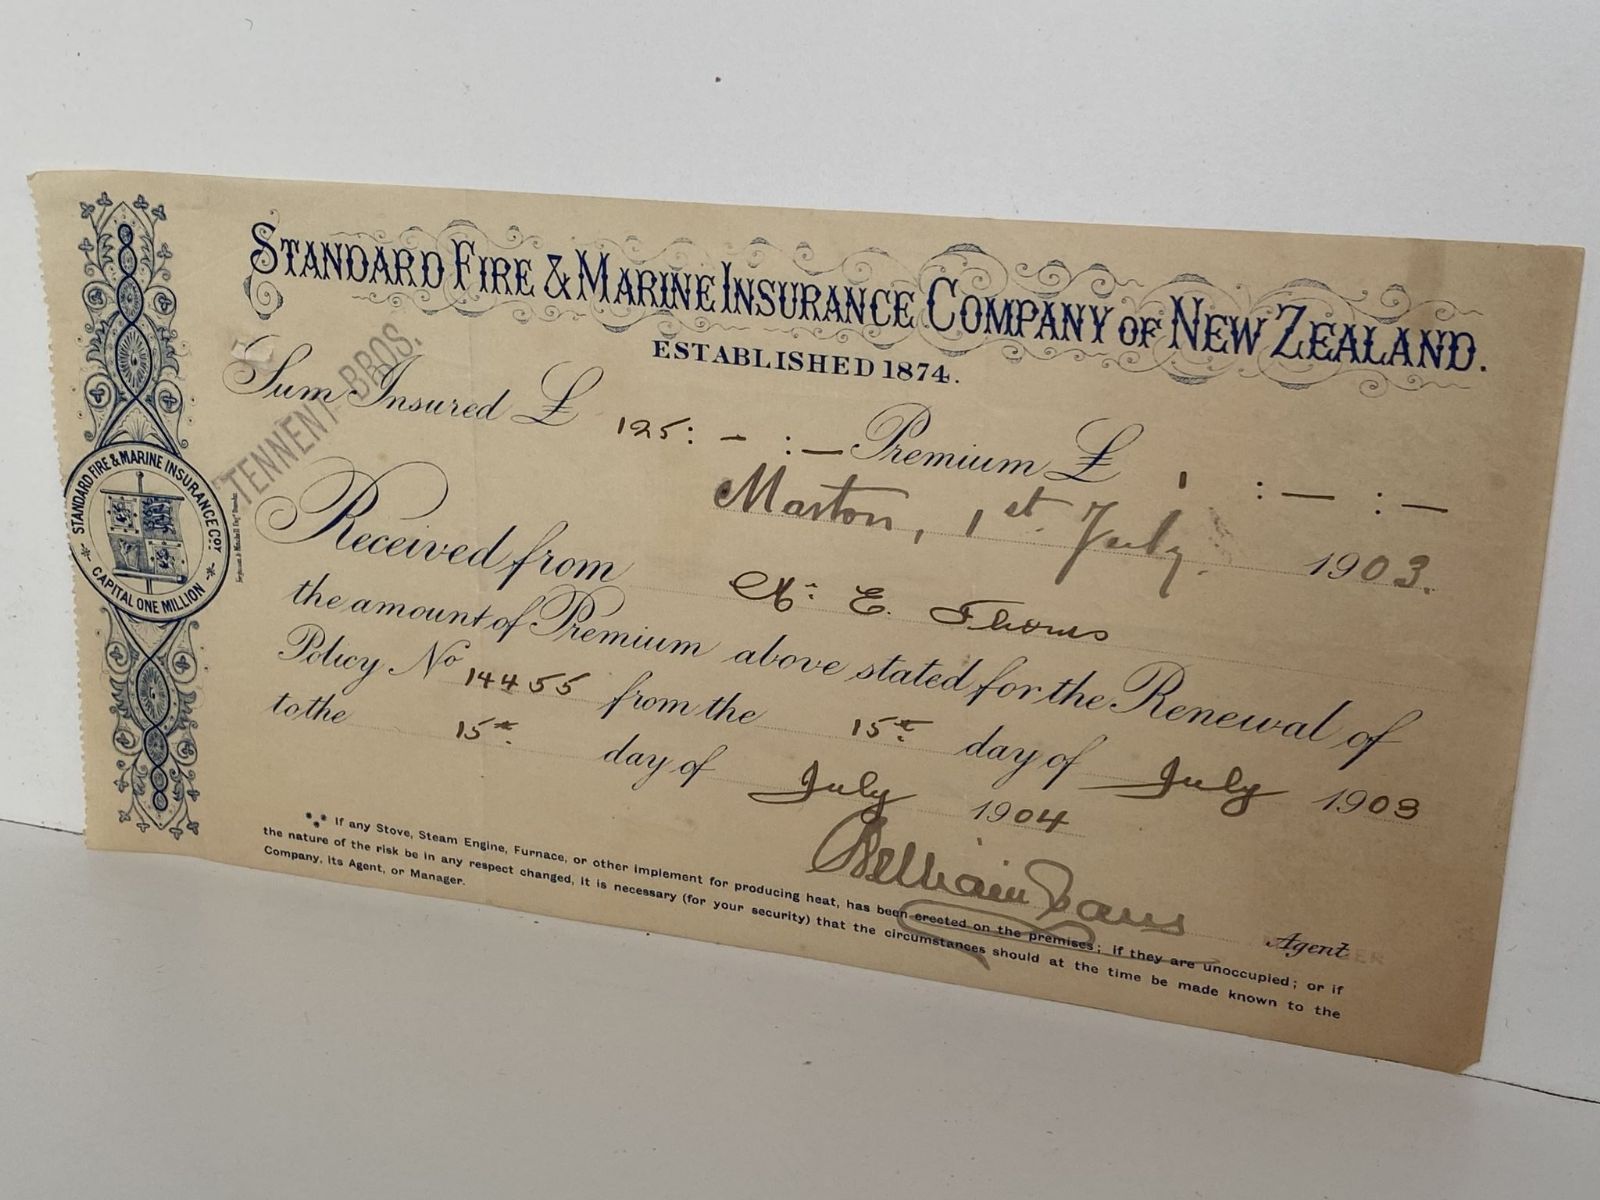 STANDARD FIRE & MARINE INSURANCE COMPANY OF NEW ZEALAND.
ESTABLISHED 1874.
TENNENT BROS.
Sum Insured £ 125 : – : – Premium £ 1 : – : –
Marton, 1st July. 1903.
Received from E.
the amount of Premium above stated for the Renewal of
Policy No 14455 from the 15th day of July 1903
to the 15th day of July 1904
Agent
⁂ If any Stove, Steam Engine, Furnace, or other implement for producing heat, has been erected on the premises; if they are unoccupied; or if
the nature of the risk be in any respect changed, it is necessary (for your security) that the circumstances should at the time be made known to the
Company, its Agent, or Manager.
STANDARD FIRE & MARINE INSURANCE COY
CAPITAL ONE MILLION